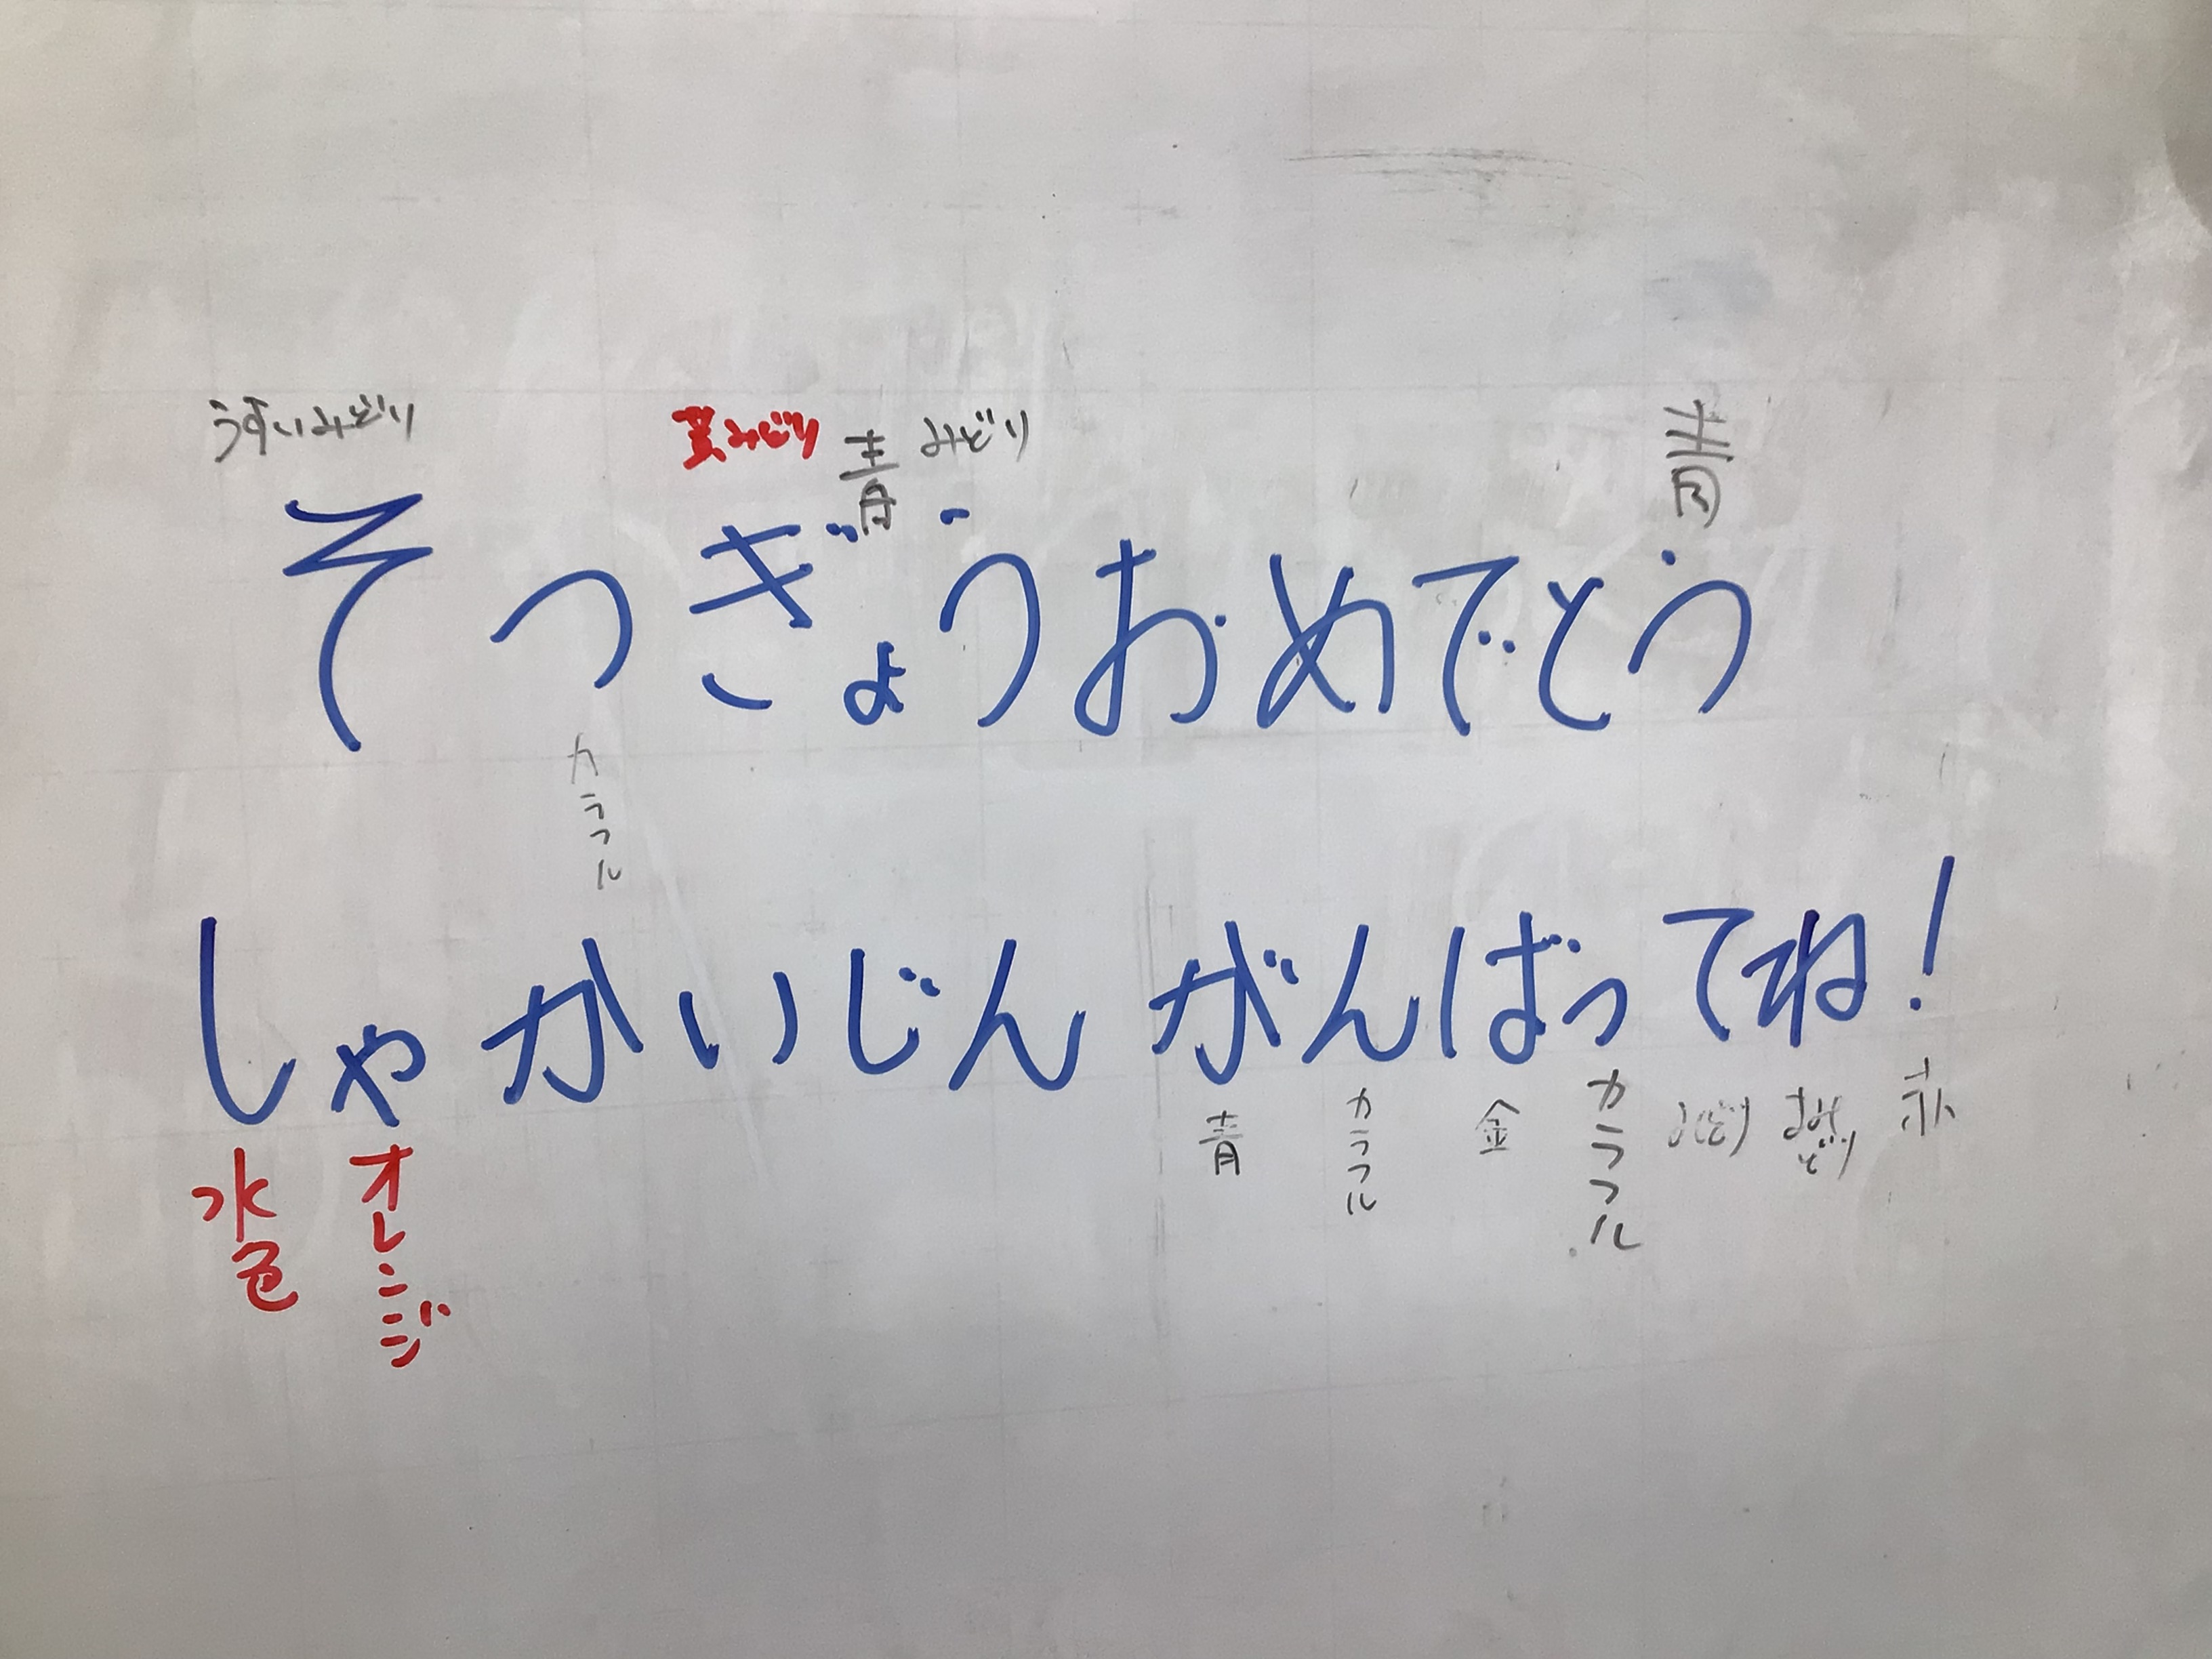 うすいみどり 黄みどり 青 みどり 青
そつぎょうおめでとう
カラフル
しゃかいじん がんばってね!
水色 オレンジ 青 カラフル 金 カラフル みどり 赤